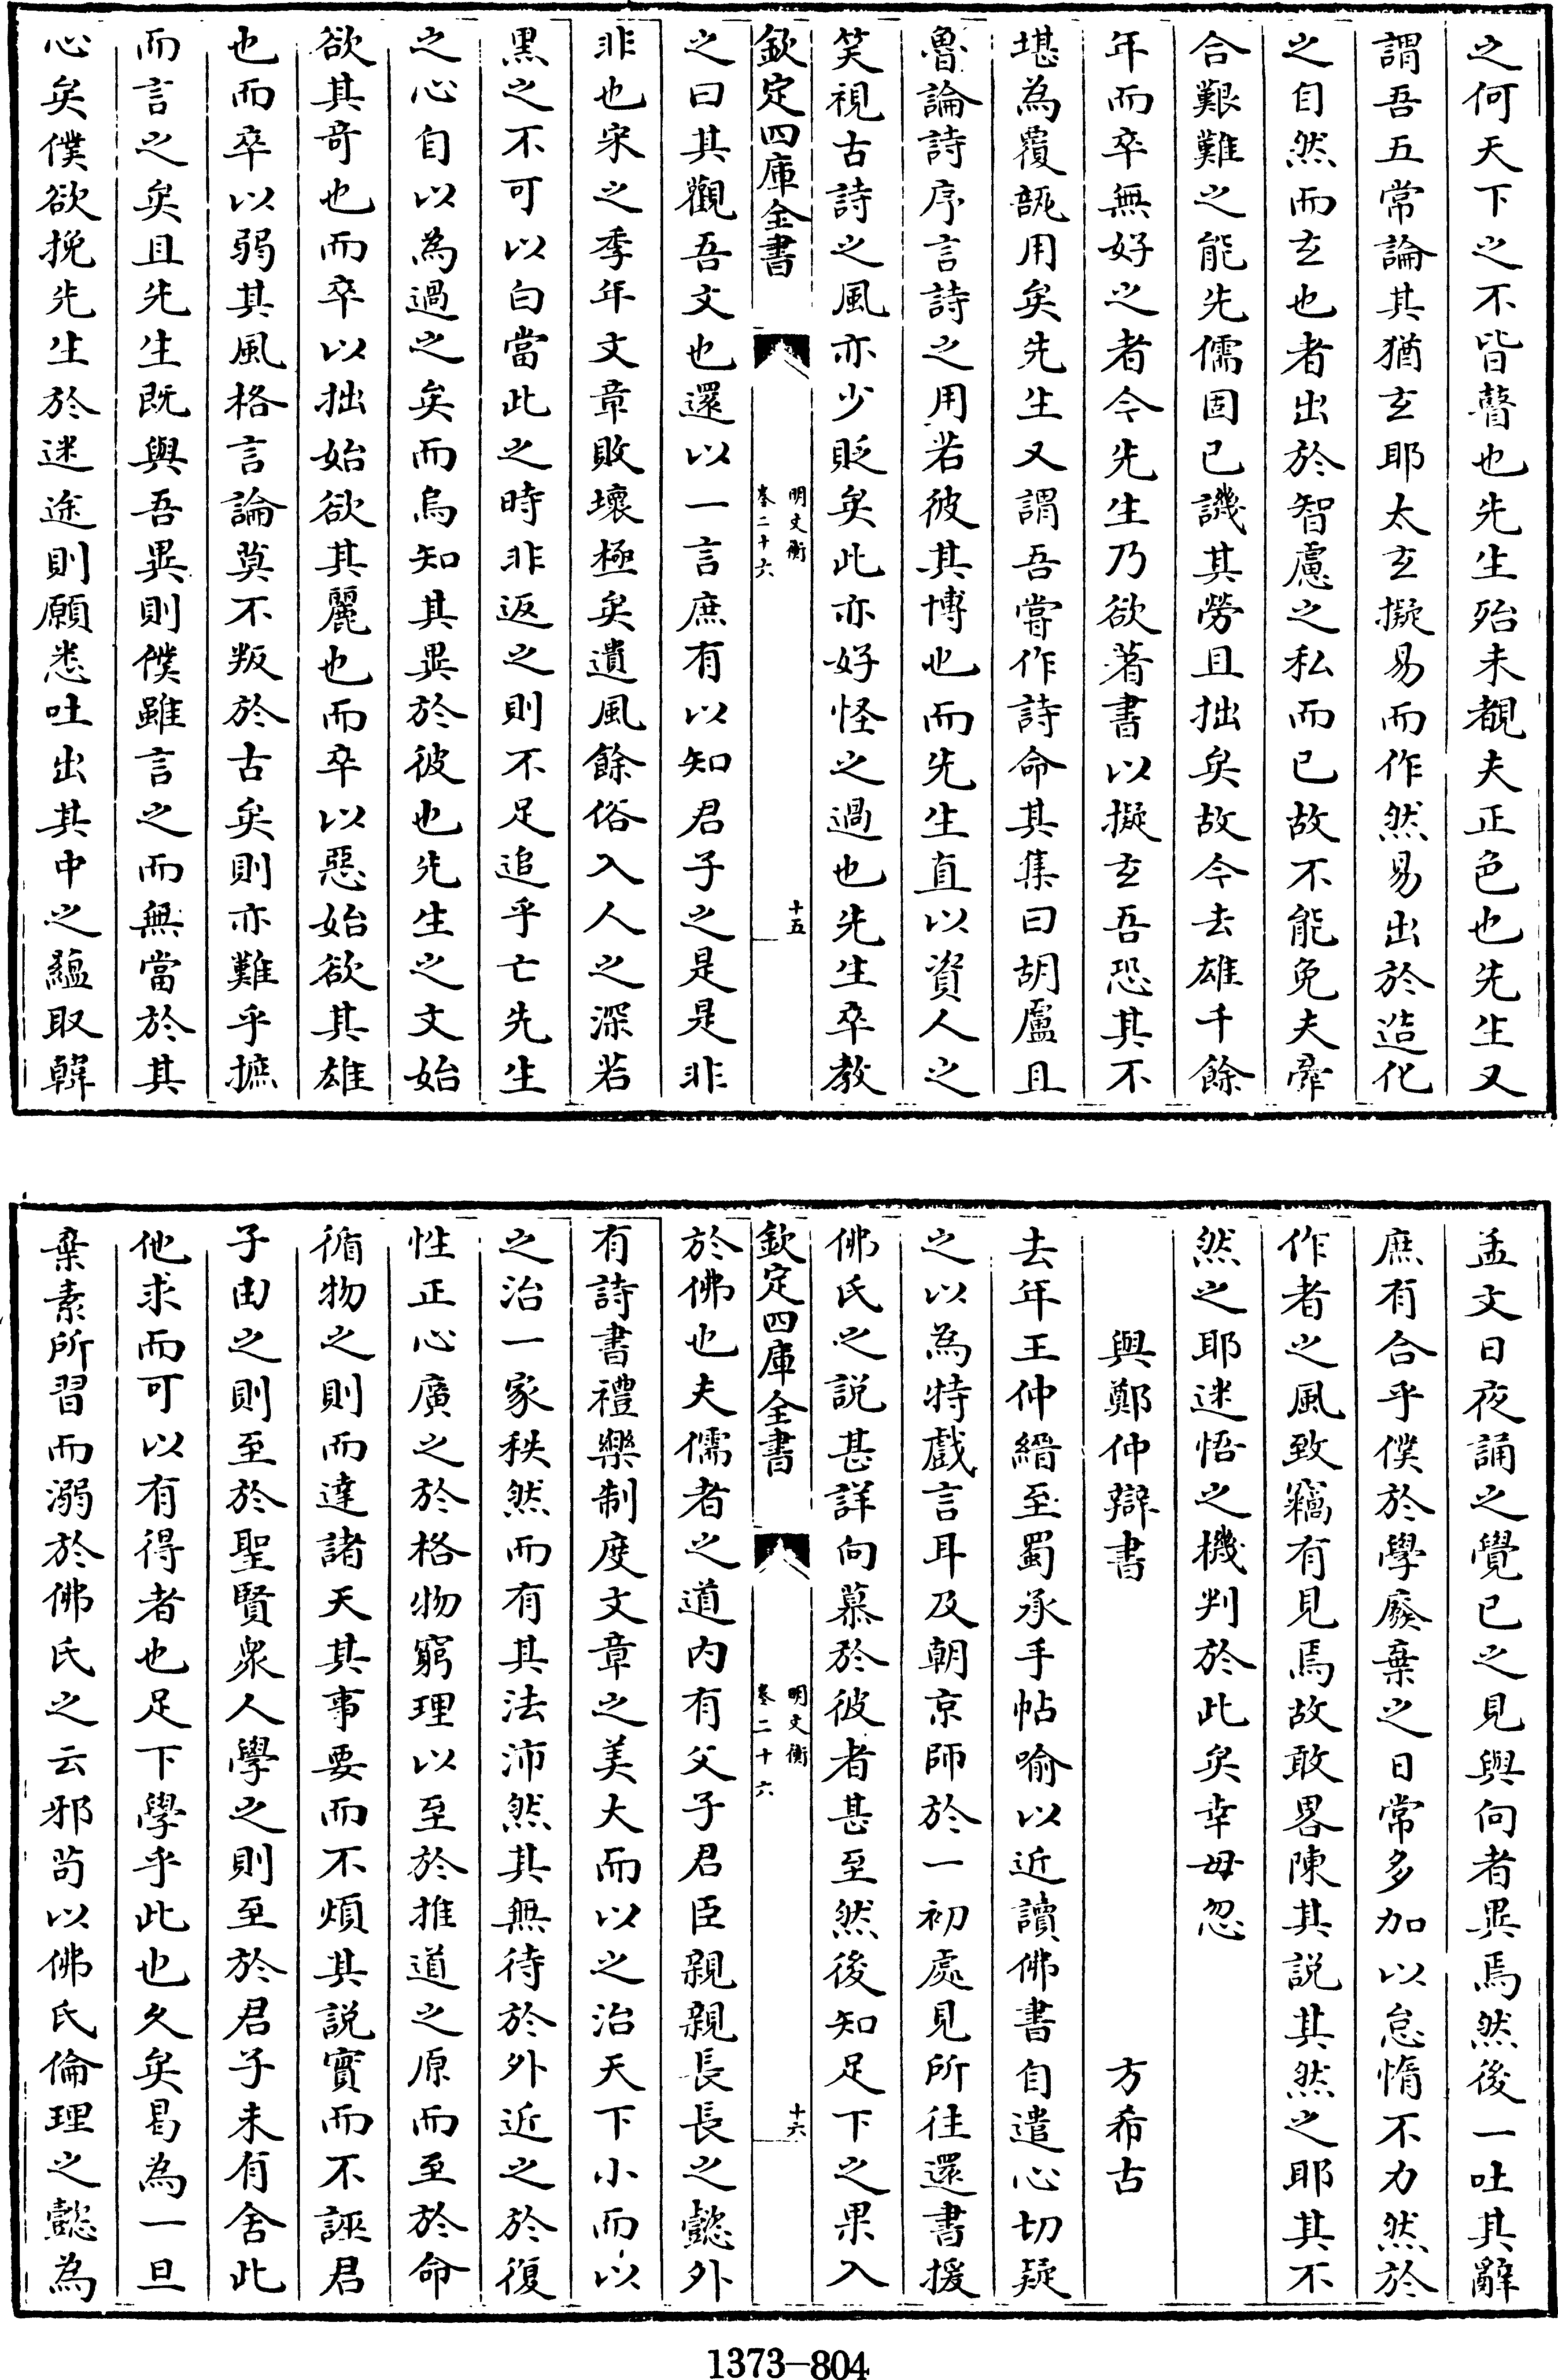 之何天下之不皆瞽也先生殆未覩夫正色也先生又
謂吾五常論其猶玄耶太玄擬易而作然易出於造化
之自然而玄也者出於智慮之私而已故不能免夫牽
合艱難之能先儒固已譏其勞且拙矣故今去雄千餘
年而卒無好之者今先生乃欲著書以擬玄吾恐其不
堪為覆瓿用矣先生又謂吾嘗作詩命其集曰胡盧且
魯論詩序言詩之用若彼其博也而先生直以資人之
笑視古詩之風亦少貶矣此亦好怪之過也先生卒教
欽定四庫全書
明文衡
卷二十六
十五
之曰其觀吾文也還以一言庶有以知君子之是是非
非也宋之季年文章敗壞極矣遺風餘俗入人之深若
黑之不可以白當此之時非返之則不足追乎亡先生
之心自以為過之矣而烏知其異於彼也先生之文始
欲其奇也而卒以拙始欲其麗也而卒以惡始欲其雄
也而卒以弱其風格言論莫不叛於古矣則亦難乎摭
而言之矣且先生既與吾異則僕雖言之而無當於其
心矣僕欲挽先生於迷途則願悉吐出其中之蘊取韓
孟文日夜誦之覺已之見與向者異焉然後一吐其辭
庶有合乎僕於學廢棄之日常多加以怠惰不力然於
作者之風致竊有見焉故敢畧陳其説其然之耶其不
然之耶迷悟之機判於此矣幸毋忽
與鄭仲辯書 方希古
去年王仲縉至蜀承手帖喻以近讀佛書自遣心切疑
之以為特戲言耳及朝京師於一初處見所往還書援
佛氏之説甚詳向慕於彼者甚至然後知足下之果入
欽定四庫全書
明文衡
卷二十六
十六
於佛也夫儒者之道内有父子君臣親親長長之懿外
有詩書禮樂制度文章之美大而以之治天下小而以
之治一家秩然而有其法沛然其無待於外近之於復
性正心廣之於格物窮理以至於推道之原而至於命
循物之則而達諸天其事要而不煩其説實而不誣君
子由之則至於聖賢衆人學之則至於君子未有舍此
他求而可以有得者也足下學乎此也久矣曷為一旦
棄素所習而溺於佛氏之云邪苟以佛氏倫理之懿為
1373-804